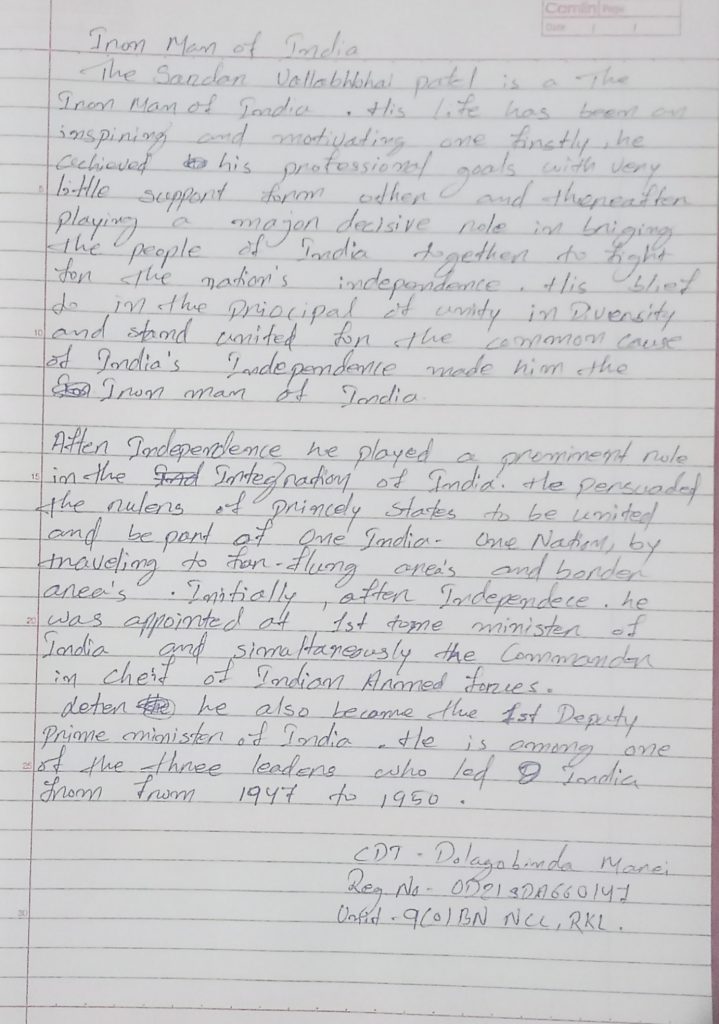 Comlin Page
Date / /
Iron Man of India
The Sardar Vallabhbhai patel is a The
Iron Man of India . His life has been an
inspiring and motivating one firstly, he
achieved his professional goals with very
little support form other and thereafter
playing a major decisive role in briging
the people of India together to fight
for the nation's independence . His blief
to in the Priocipal of unity in Diversity
and stand united for the common cause
of India's Independence made him the
Iron man of India.
After Independence he played a prominent role
in the Integration of India. He persuaded
the rulers of princely states to be united
and be part of One India- One Nation, by
traveling to far-flung area's and border
areea's . Initially , after Independece . he
was appointed at 1st tome minister of
India and simaltaneously the Commander
in cheif of Indian Armed forces.
deter he also become the 1st Deputy
Prime minister of India . He is among one
of the three leaders who led India
from from 1947 to 1950 .
CDT - Dolagobinda Marei
Reg No- OD21SDA660147
Unfid - 9(O)BN NCC, RKL .